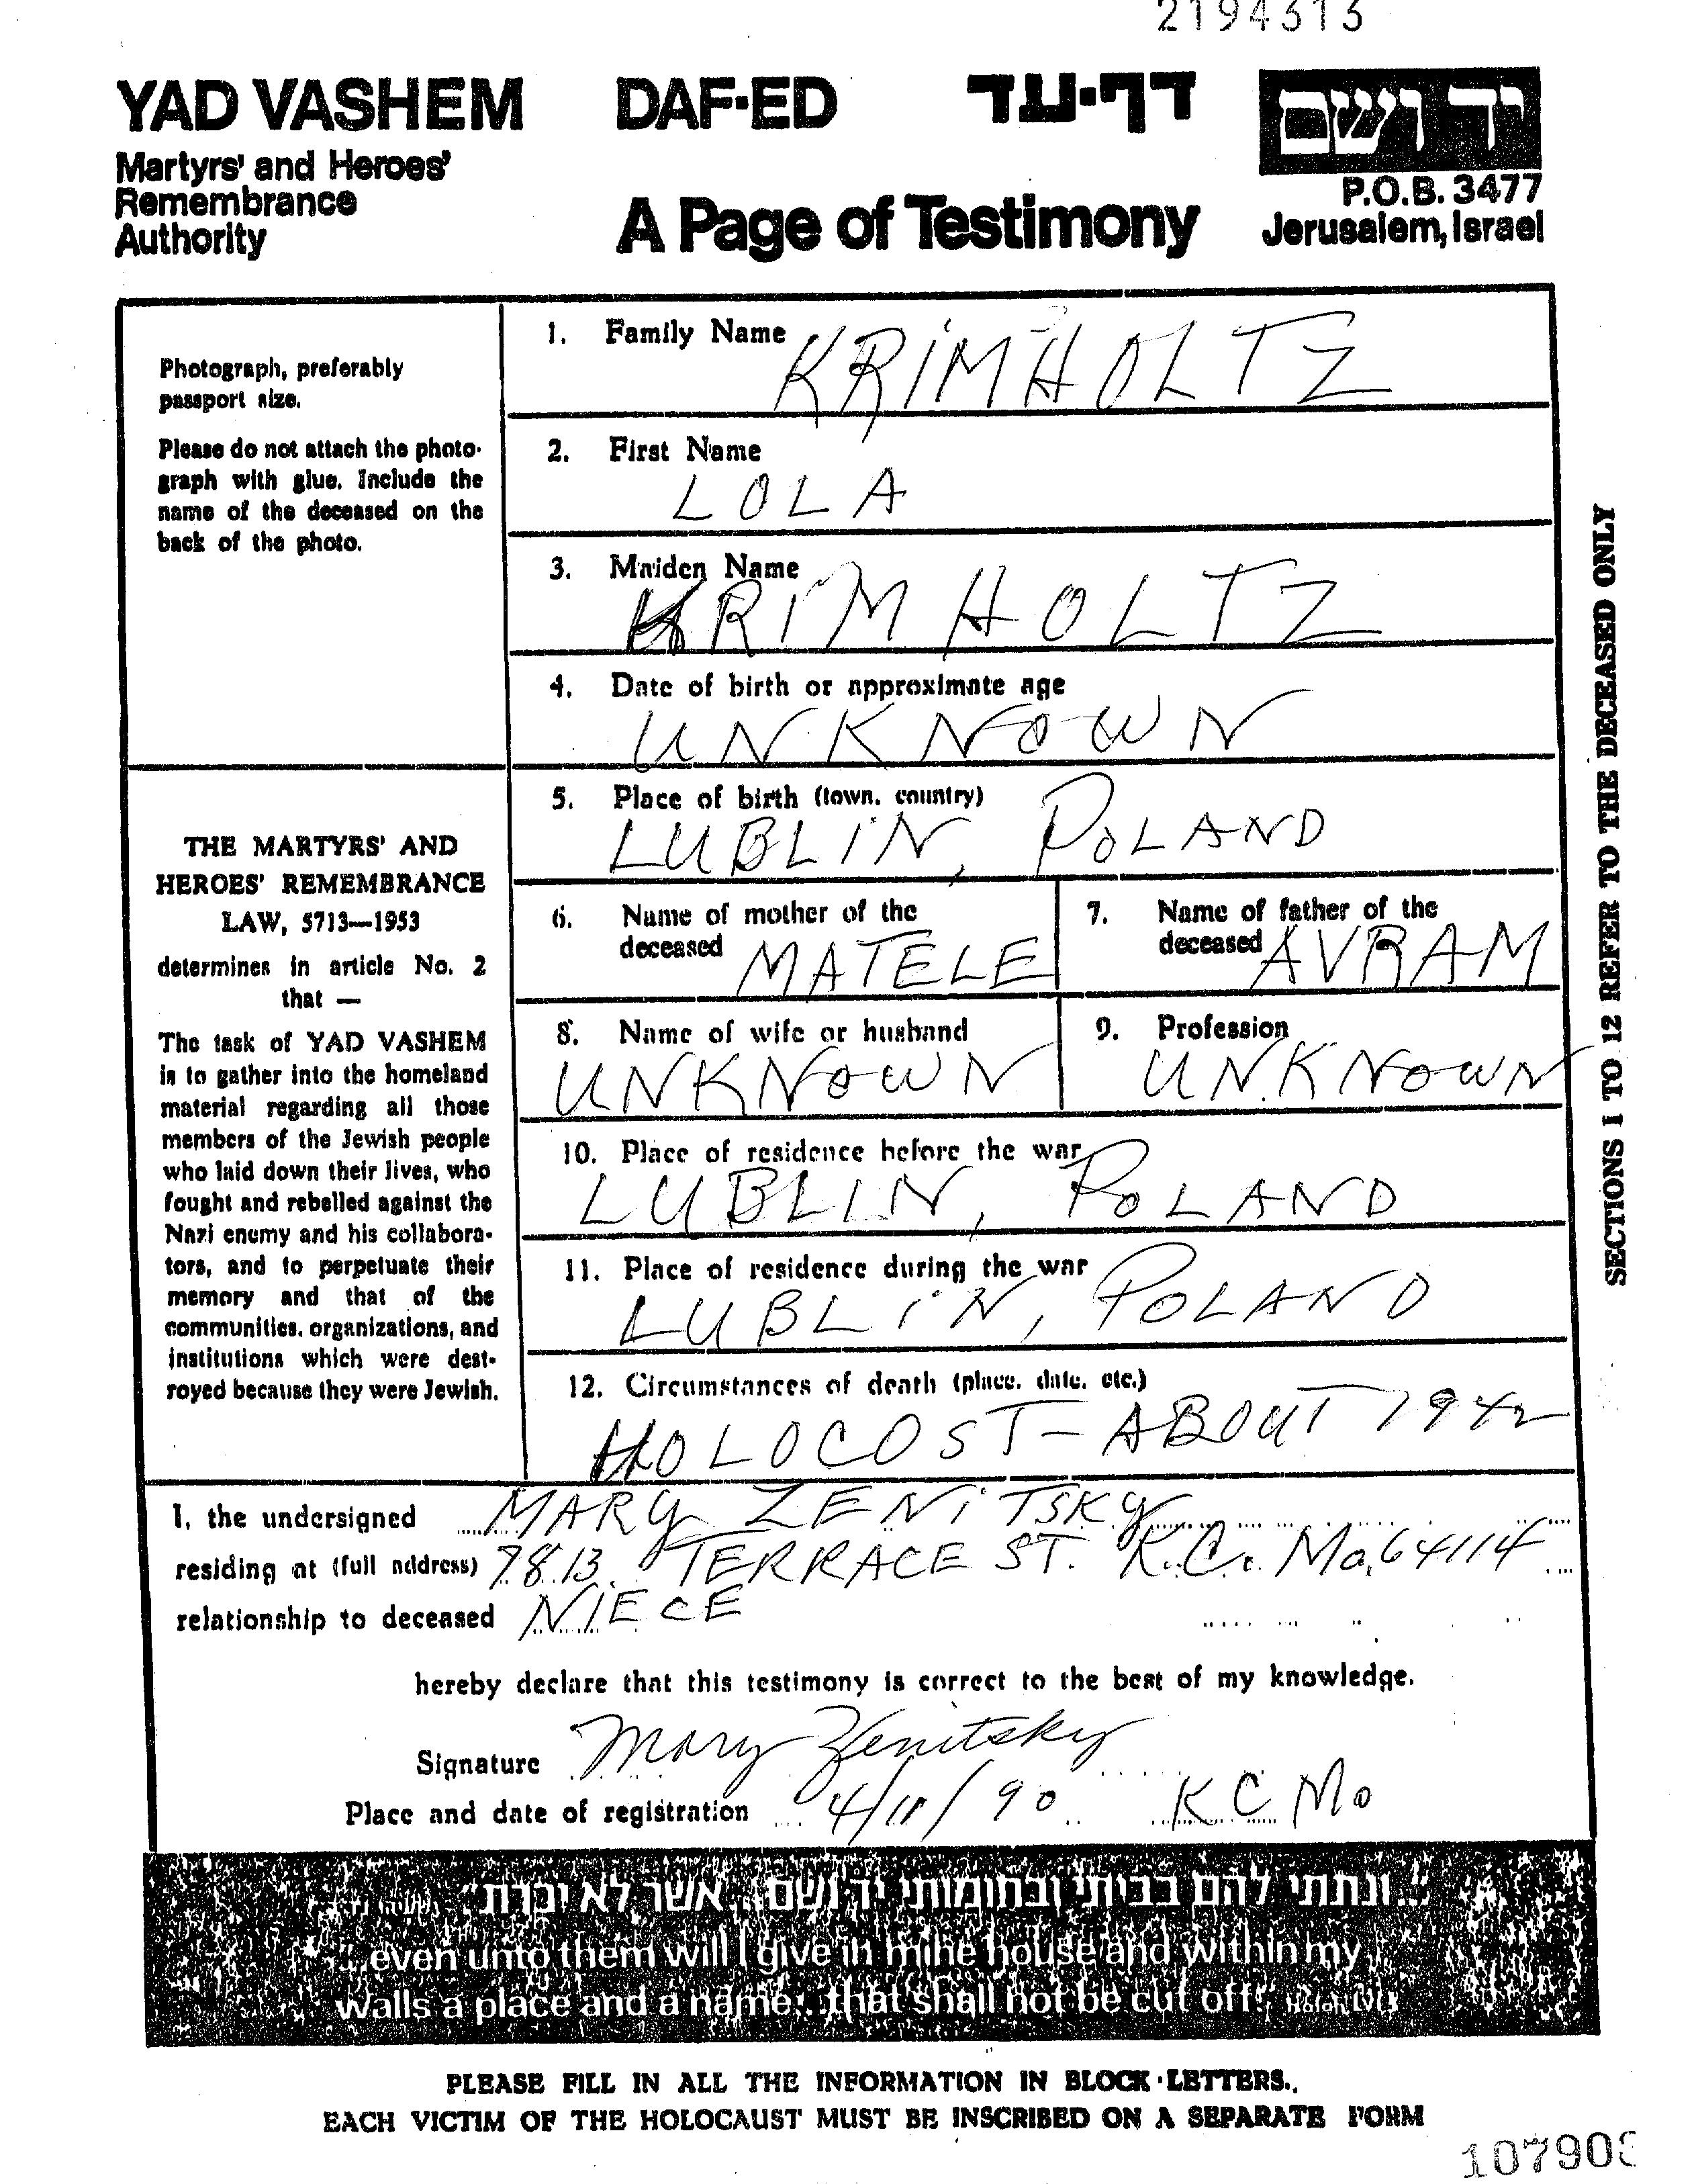 2194313
YAD VASHEM DAF-ED דף-עד יד ושם
Martyrs' and Heroes'
Remembrance
Authority
A Page of Testimony
P.O.B. 3477
Jerusalem, Israel
Photograph, preferably
passport size.
Please do not attach the photo-
graph with glue. Include the
name of the deceased on the
back of the photo.
THE MARTYRS' AND
HEROES' REMEMBRANCE
LAW, 5713—1953
determines in article No. 2
that —
The task of YAD VASHEM
is to gather into the homeland
material regarding all those
members of the Jewish people
who laid down their lives, who
fought and rebelled against the
Nazi enemy and his collabora-
tors, and to perpetuate their
memory and that of the
communities, organizations, and
institutions which were dest-
royed because they were Jewish.
1. Family Name KRIMHOLTZ
2. First Name
LOLA
3. Maiden Name
KRIMHOLTZ
4. Date of birth or approximate age
UNKNOWN
5. Place of birth (town, country)
LUBLIN, POLAND
6. Name of mother of the
deceased MATELE
7. Name of father of the
deceased AVRAM
8. Name of wife or husband
UNKNOWN
9. Profession
UNKNOWN
10. Place of residence before the war
LUBLIN, POLAND
11. Place of residence during the war
LUBLIN, POLAND
12. Circumstances of death (place, date, etc.)
HOLOCOST - ABOUT 1942
SECTIONS 1 TO 12 REFER TO THE DECEASED ONLY
I, the undersigned MARY ZENITSKY
residing at (full address) 7813 TERRACE ST. K.C. Mo. 64114
relationship to deceased NIECE
hereby declare that this testimony is correct to the best of my knowledge.
Signature Mary Zenitsky
Place and date of registration 4/11/90 KC Mo
"ונתתי להם בביתי ובחומותי יד ושם... אשר לא יכרת"
"...even unto them will I give in mine house and within my
walls a place and a name... that shall not be cut off."
PLEASE FILL IN ALL THE INFORMATION IN BLOCK LETTERS.
EACH VICTIM OF THE HOLOCAUST MUST BE INSCRIBED ON A SEPARATE FORM